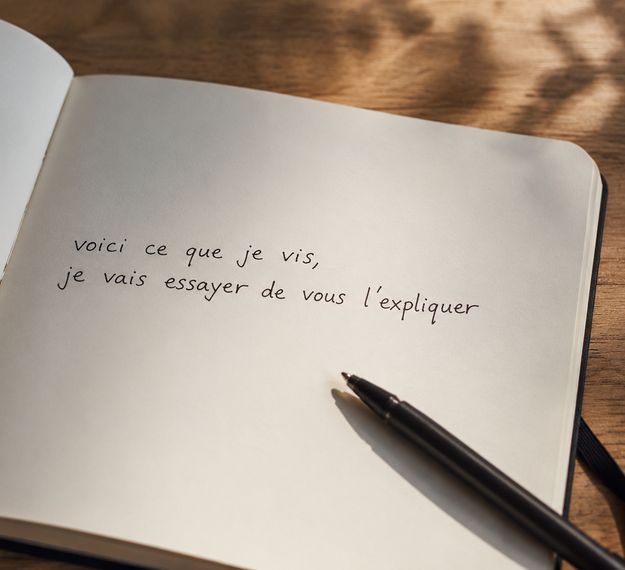 voici ce que je vis,
je vais essayer de vous l'expliquer